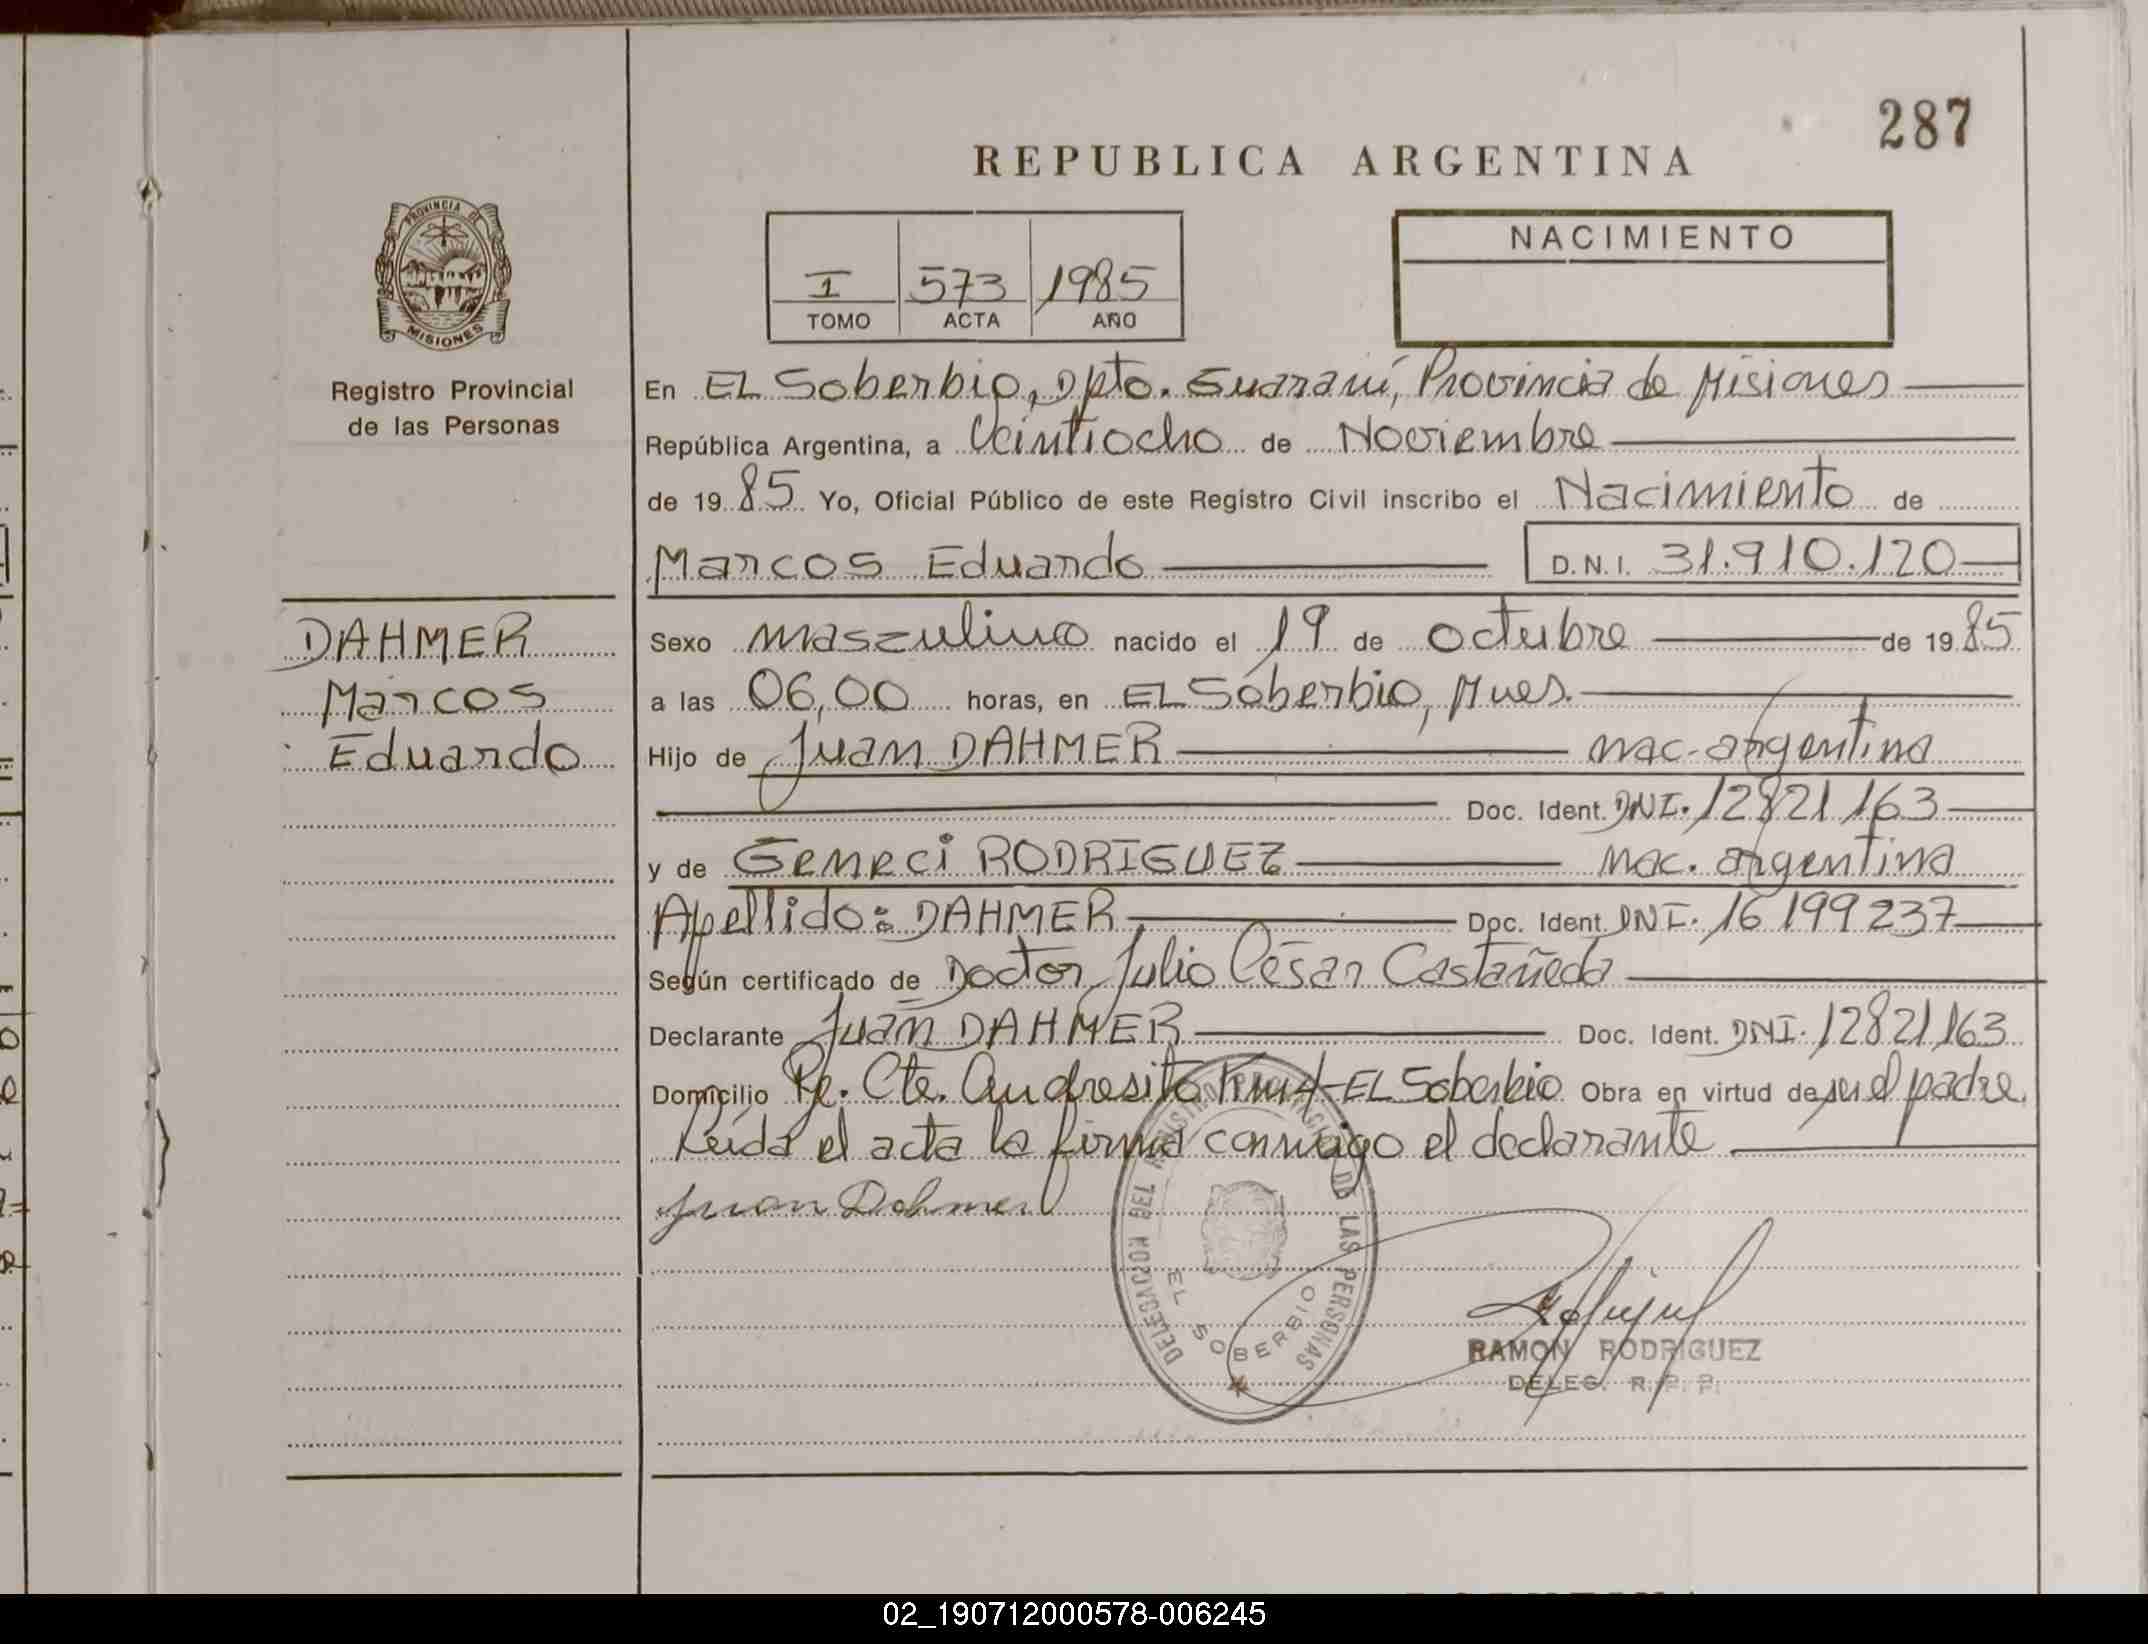 287
REPUBLICA ARGENTINA
PROVINCIA DE
MISIONES
Registro Provincial
de las Personas
I 573 1985
TOMO ACTA AÑO
NACIMIENTO
En EL Soberbio, Dpto. Guaraní, Provincia de Misiones
República Argentina, a Veintiocho de Noviembre
de 19 85 Yo, Oficial Público de este Registro Civil inscribo el Nacimiento de
Marcos Eduardo D.N.I. 31.910.120
DAHMER
Marcos
Eduardo
Sexo masculino nacido el 19 de octubre de 19 85
a las 06,00 horas, en EL Soberbio, Mnes.
Hijo de Juan DAHMER nac. argentina
Doc. Ident. DNI. 12821163
y de Geneci RODRIGUEZ nac. argentina
Apellido: DAHMER Doc. Ident. DNI. 16199237
Según certificado de Doctor Julio César Castañeda
Declarante Juan DAHMER Doc. Ident. DNI. 12821163
Domicilio Pje. Cte. Andresito EL Soberbio Obra en virtud de ser el padre
Leída el acta la firma conmigo el declarante
Juan Dahmer
DELEGACION DEL REGISTRO PROVINCIAL DE LAS PERSONAS
EL SOBERBIO
RAMON RODRIGUEZ
DELEG. R. P. P.
02_190712000578-006245